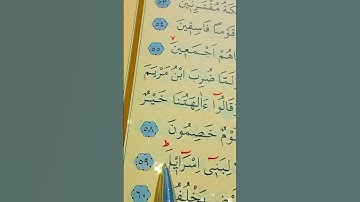 كَةُ مُقْتَرِنِينَ ﴿٥٣﴾
قَوْمًا فَاسِقِينَ ﴿٥٤﴾
اهُمْ اَجْمَعِينَ ﴿٥٥﴾
لَمَّا ضُرِبَ ابْنُ مَرْيَمَ
قَالُٓوا ءَاٰلِهَتُنَا خَيْرٌ
قَوْمٌ خَصِمُونَ ﴿٥٨﴾
لِبَنٓى اِسْرَٓائِلَ ﴿٥٩﴾
ضِ يَخْلُفُ ﴿٦٠﴾